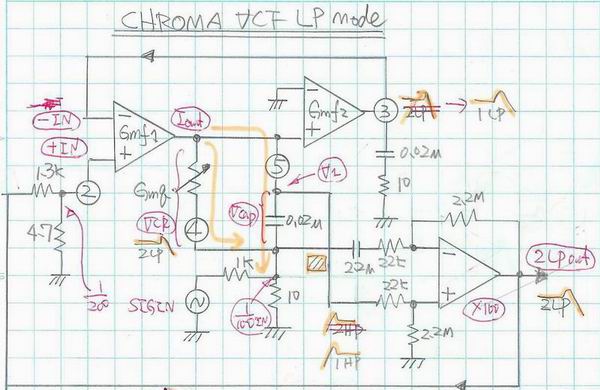 CHROMA VCF LP mode
-IN
Gmf1
Iout
Gmf2
3
2LP
1LP
+IN
1.3K
2
Gmq
5
V1
0.02M
10
2.2M
47
VCR
2LP
4
Vcap
0.02M
1/200
SIGIN
1K
1/100IN
10
22M
22K
22K
2LPout
X100
2LP
2HP
1HP
2.2M